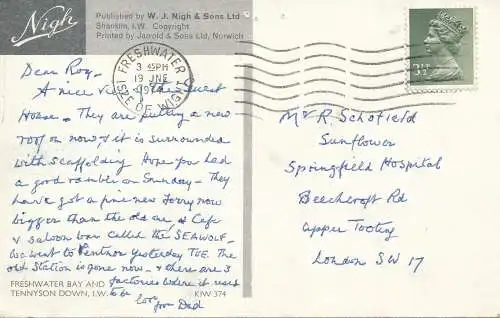 Nigh
Published by W. J. Nigh & Sons Ltd
Shanklin, I.W. Copyright
Printed by Jarrold & Sons Ltd, Norwich
FRESHWATER
3 45PM
19 JNE
1974
ISLE OF WIGHT
3½
Dear Roy,
A nice view of the Guest
House - They are putting a new
roof on now & it is surrounded
with scaffolding Hope you had
a good ramble on Sunday - They
have got a fine new Ferry now
bigger than the old one, a Cafe
& saloon bar called the SEAWOLF -
We went to Ventnor yesterday TUE. The
old Station is gone now - & there are 3
factories where it used
to be
love from Dad
FRESHWATER BAY AND
TENNYSON DOWN, I.W.
KIW 374
Mr R Schofield
Sunflower
Springfield Hospital
Beechcroft Rd
Upper Tooting
London SW 17